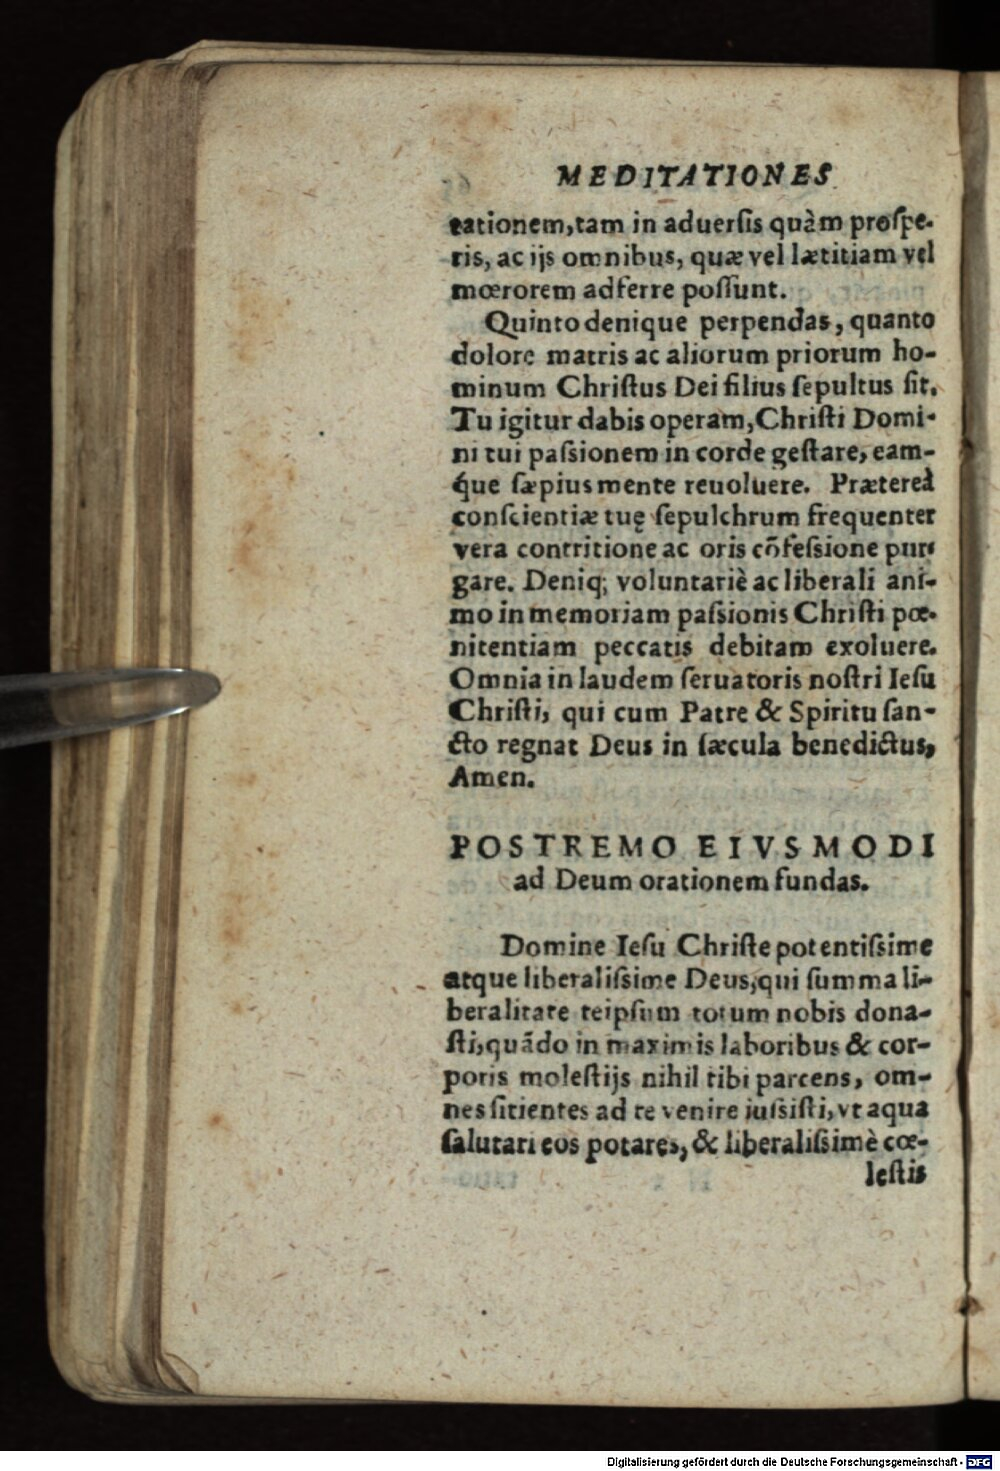 MEDITATIONES
tationem, tam in aduerſis quàm proſpe-
ris, ac ijs omnibus, quæ vel lætitiam vel
mœrorem adferre poſſunt.
Quinto denique perpendas, quanto
dolore matris ac aliorum priorum ho-
minum Chriſtus Dei filius ſepultus ſit.
Tu igitur dabis operam, Chriſti Domi-
ni tui paſsionem in corde geſtare, eam-
q́ue ſæpius mente reuoluere. Prætereà
conſcientiæ tuę ſepulchrum frequenter
vera contritione ac oris cõfeſsione pur-
gare. Deniq; voluntariè ac liberali ani-
mo in memoriam paſsionis Chriſti pœ-
nitentiam peccatis debitam exoluere.
Omnia in laudem ſeruatoris noſtri Ieſu
Chriſti, qui cum Patre & Spiritu ſan-
cto regnat Deus in ſæcula benedictus,
Amen.
POSTREMO EIVSMODI
ad Deum orationem fundas.
Domine Ieſu Chriſte potentiſsime
atque liberaliſsime Deus, qui ſumma li-
beralitate teipſum totum nobis dona-
ſti, quãdo in maximis laboribus & cor-
poris moleſtijs nihil tibi parcens, om-
nes ſitientes ad te venire iuſsiſti, vt aqua
ſalutari eos potares, & liberaliſsimè cœ-
leſtis
Digitalisierung gefördert durch die Deutsche Forschungsgemeinschaft - DFG